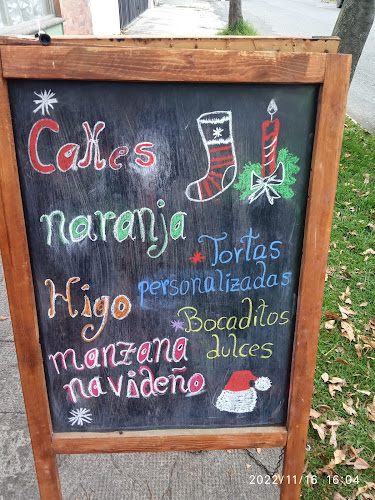 Cakes
naranja
Tortas
personalizadas
Higo
Bocaditos
dulces
manzana
navideño
2022/11/16 16:04